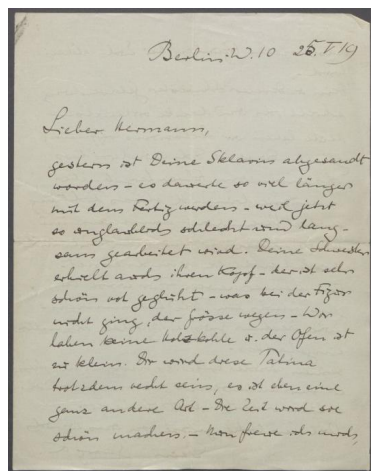 Berlin.W.10 25.V 19
Lieber Hermann,
gestern ist Deine Sklavin abgesandt
worden – es dauerte so viel länger
mit dem Fertig werden – weil jetzt
so unglaublich schlecht und lang-
sam gearbeitet wird. Deine Schwester
erhielt auch ihren Kopf – der ist sehr
schön rot geglüht – was bei der Figur
nicht ging, der Grösse wegen – Wir
haben keine Holzkohle u. der Ofen ist
zu klein. Dir wird diese Patina
trotzdem recht sein, es ist eben eine
ganz andere Art – Die Zeit wird sie
schön machen. – Nun freue ich mich,